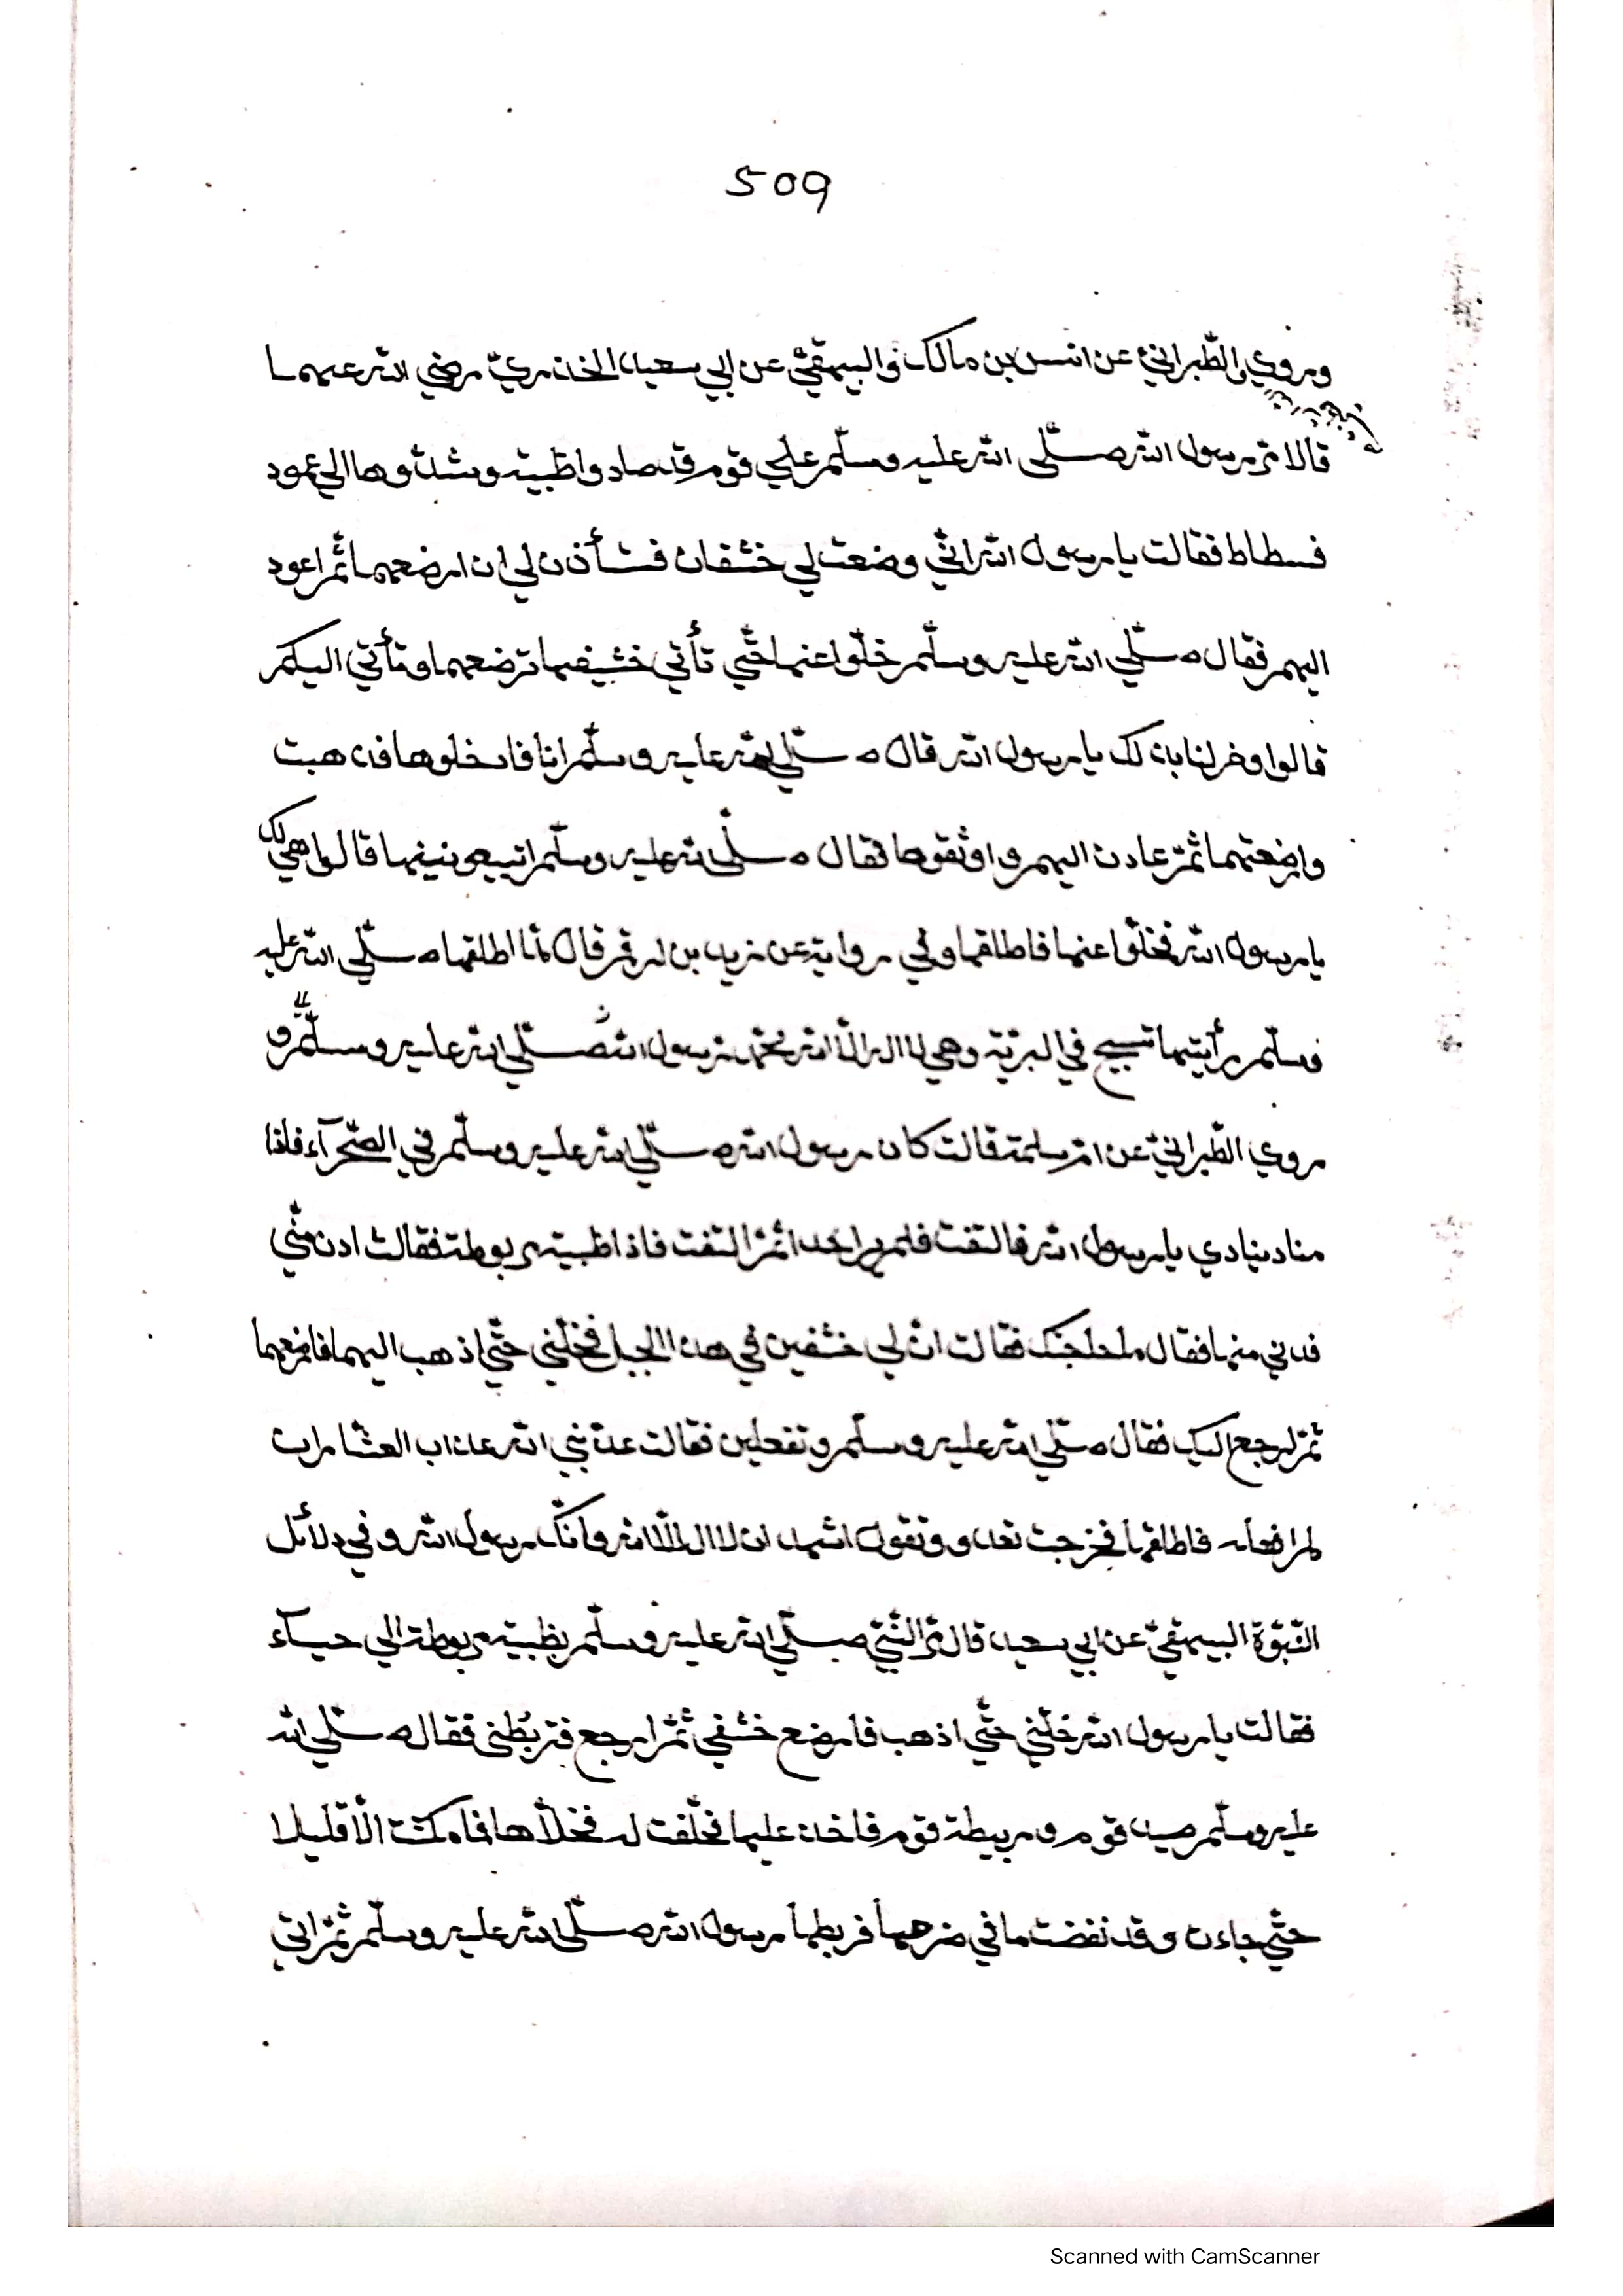 509
وروي الطّبرانيّ عن انس بن مالك والبيهقيّ عن ابي سعيد الخدريّ رضي الله عنهما
قالا مرّ رسول الله صلّى الله عليه وسلّم علي قوم قد صادوا ظبية وشدّوها الي عمود
فسطاط فقالت يا رسول الله انّي وضعت لي خشفان فستأذن لي ان ارضعهما ثمّ اعود
اليهم فقال صلّي الله عليه وسلّم خلّوا عنها حتّي تأتي خشفيها ترضعهما وتأتي اليكم
قالوا ومن لنا بذلك يا رسول الله قال صلّي الله عليه وسلّم انا فاخلوها فذهبت
وارضعتهما ثمّ عادت اليهم واوثقوها فقال صلّى الله عليه وسلّم اتبيعونيها قالوا هي لك
يا رسول الله فخلّوا عنها فاطلقها وفي رواية عن زيد بن ارقم قال لمّا اطلقها صلّي الله عليه
وسلّم رأيتها تسبح في البرّيّة وهي لا اله الّا الله محمّد رسول الله صلّي الله عليه وسلّم و
روي الطّبرانيّ عن امّ سلمة قالت كان رسول الله صلّي الله عليه وسلّم في الصّحرآء فاذا
مناد ينادي يا رسول الله فالتفت فلم ير احدا ثمّ التفت فاذا ظبية مربوطة فقالت ادن منّي
فدني منها فقال ما حاجتك فقالت انّ لي خشفين في هذا الجبل فخلّني حتّي اذهب اليهما فارضعهما
ثمّ ارجع اليك فقال صلّي الله عليه وسلّم وتفعلين فقالت عذّبني الله عذاب العشّار ان
لم افعله فاطلقها فخرجت تعدو وتقول اشهد ان لا اله الّا الله وانّك رسول الله وفي دلائل
النّبوّة البيهقيّ عن ابي سعيد قال مرّ النّبيّ صلّي الله عليه وسلّم بظبية مربوطة الي خبآء
فقالت يا رسول الله خلّني حتّي اذهب فارضع خشفي ثمّ ارجع فتربُطني فقال صلّي الله
عليه وسلّم صيد قوم وربيطة قوم فاخذ عليها فحلّفت له فخلّأها فما مكثت الّا قليلا
حتّي جاءت وقد نفضت ما في ضرعها فربطها رسول الله صلّى الله عليه وسلّم ثمّ اتي
Scanned with CamScanner